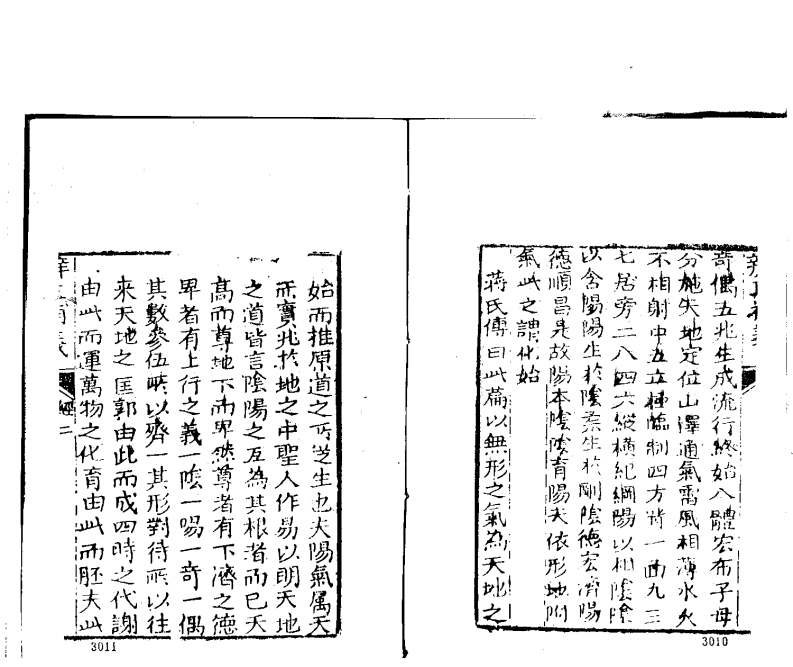 奇偶五兆生成流行終始八體宏布子母
分施天地定位山澤通氣雷風相薄水火
不相射中五立極臨制四方背一面九三
七居旁二八四六縱橫紀綱陽以相陰陰
以含陽陽生於陰柔生於剛陰德宏濟陽
德順昌是故陽本陰陰育陽天依形地附
氣此之謂化始
蔣氏傳曰此篇以無形之氣為天地之
3010
始而推原道之所從生也夫陽氣屬天
而實兆於地之中聖人作易以明天地
之道皆言陰陽之互為其根者而已天
高而尊地下而卑然尊者有下濟之德
卑者有上行之義一陰一陽一奇一偶
其數參伍所以齊一其形對待所以往
來天地之匡郭由此而成四時之代謝
由此而運萬物之化育由此而胚夫此
經
二
3011